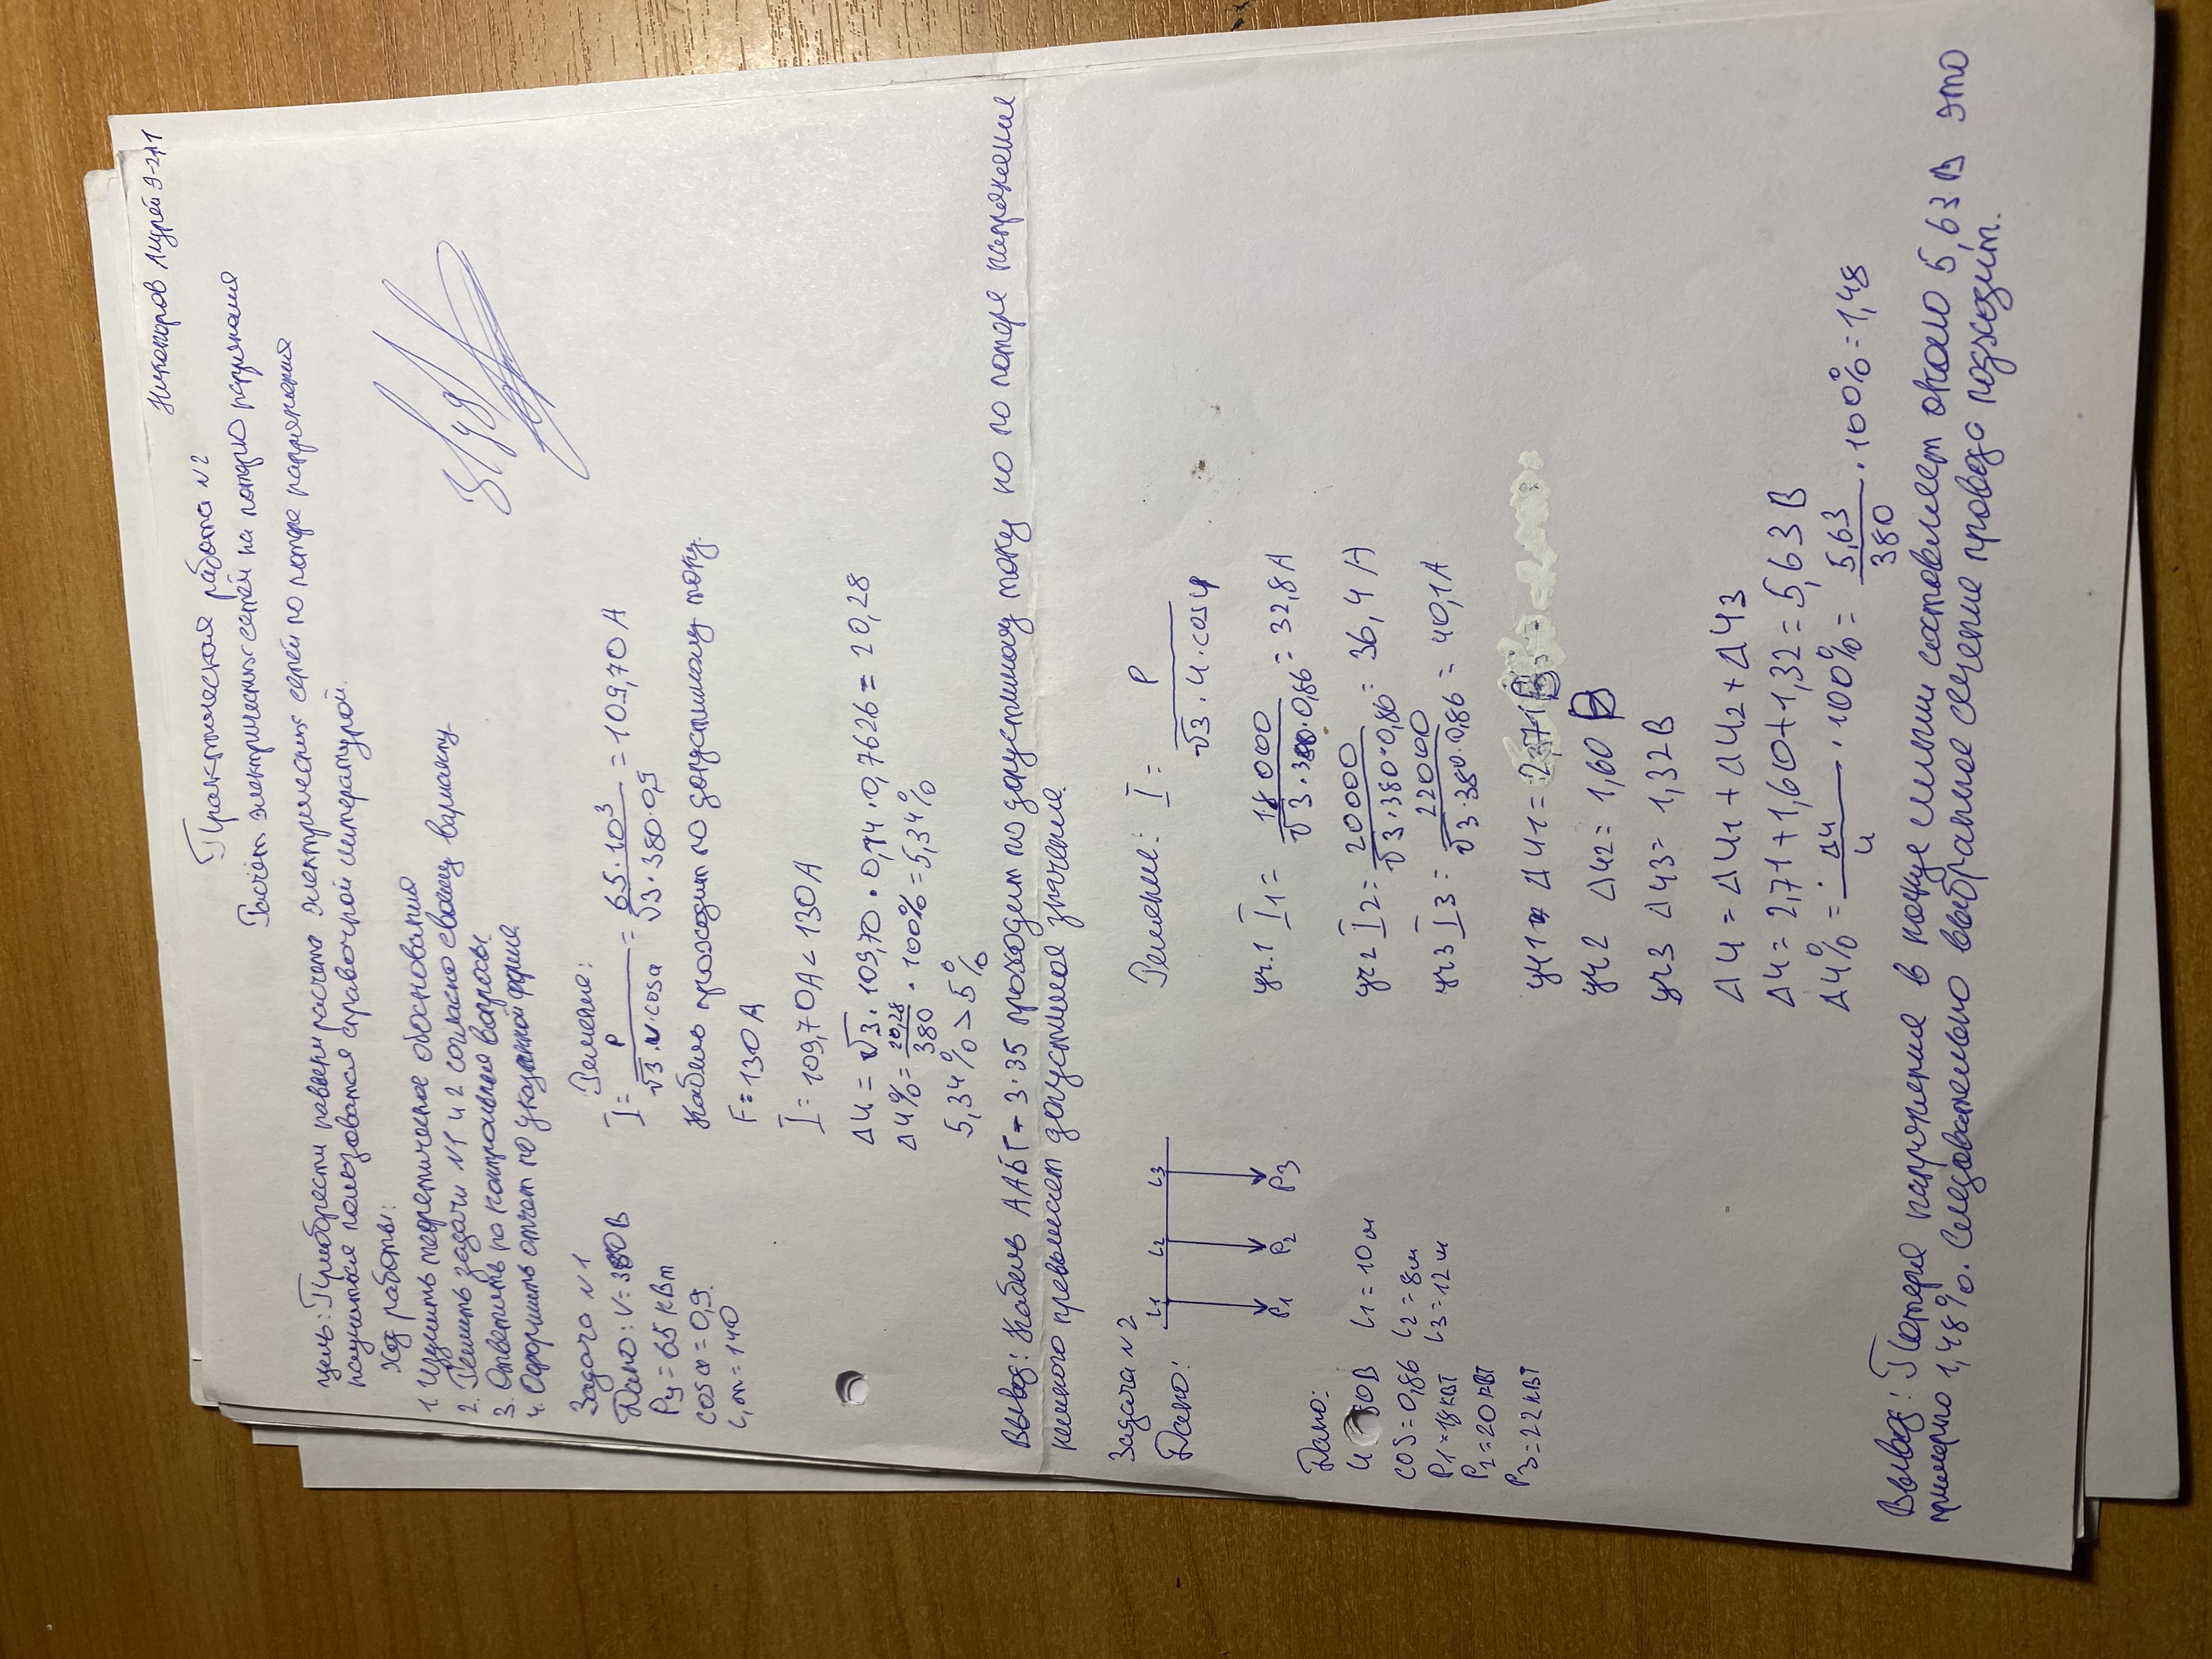 Никоноров Андрей Э-211
Практическая работа №2
Расчёт электрических сетей на потерю напряжения
Цель: Приобрести навыки расчета электрических сетей по потере напряжения
научиться пользоваться справочной литературой.
Ход работы:
1. Изучить теоретическое обоснования
2. Решить задачи №1 и 2 согласно своему варианту
3. Ответить на контрольные вопросы
4. Оформить отчет по указанной форме
Задача №1
Дано: V=380В
Ру = 65 кВт
cosα = 0,9
L,m = 140
Решение:
I = P/√3·u·cosα = 65·10³/√3·380·0,9 = 109,70 A
Кабель проходит по допустимому току.
F = 130 A
I = 109,70A < 130 A
Δu = √3·109,70·0,14·0,7626 = 20,28
Δu% = 20,28/380 · 100% = 5,34%
5,34% > 5%
Вывод: Кабель ААБГ-3·35 проходит по допустимому току но по потере напряжение
немного превышает допустимое значение.
Задача №2
Дано:
L1 L2 L3
P1 P2 P3
Дано:
80В L1 = 10м
COS = 0,86 L2 = 8м
P1 = 18 кВт L3 = 12м
P2 = 20 кВт
P3 = 22 кВт
Решение: I = P/√3·u·cosφ
уч.1 I1 = 18000/√3·380·0,86 = 32,8A
уч2 I2 = 20000/√3·380·0,86 = 36,4 A
уч3 I3 = 22000/√3·380·0,86 = 40,1A
уч1 Δu1 = 2,71В
уч2 Δu2 = 1,60 В
уч3 Δu3 = 1,32В
Δu = Δu1 + Δu2 + Δu3
Δu = 2,71+1,60+1,32 = 5,63 В
Δu% = Δu/u · 100% = 5,63/380 · 100% = 1,48
Вывод: Потеря напряжение в конце линии составляет около 5,63 В это
примерно 1,48%. Следовательно выбранное сечение провода подходит.